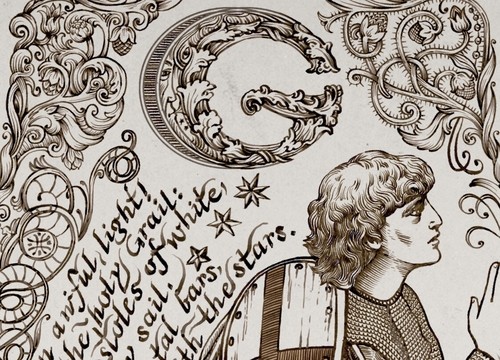 G
awful light!
he holy Grail:
stoles of white;
sail
tal bars,
th the stars.